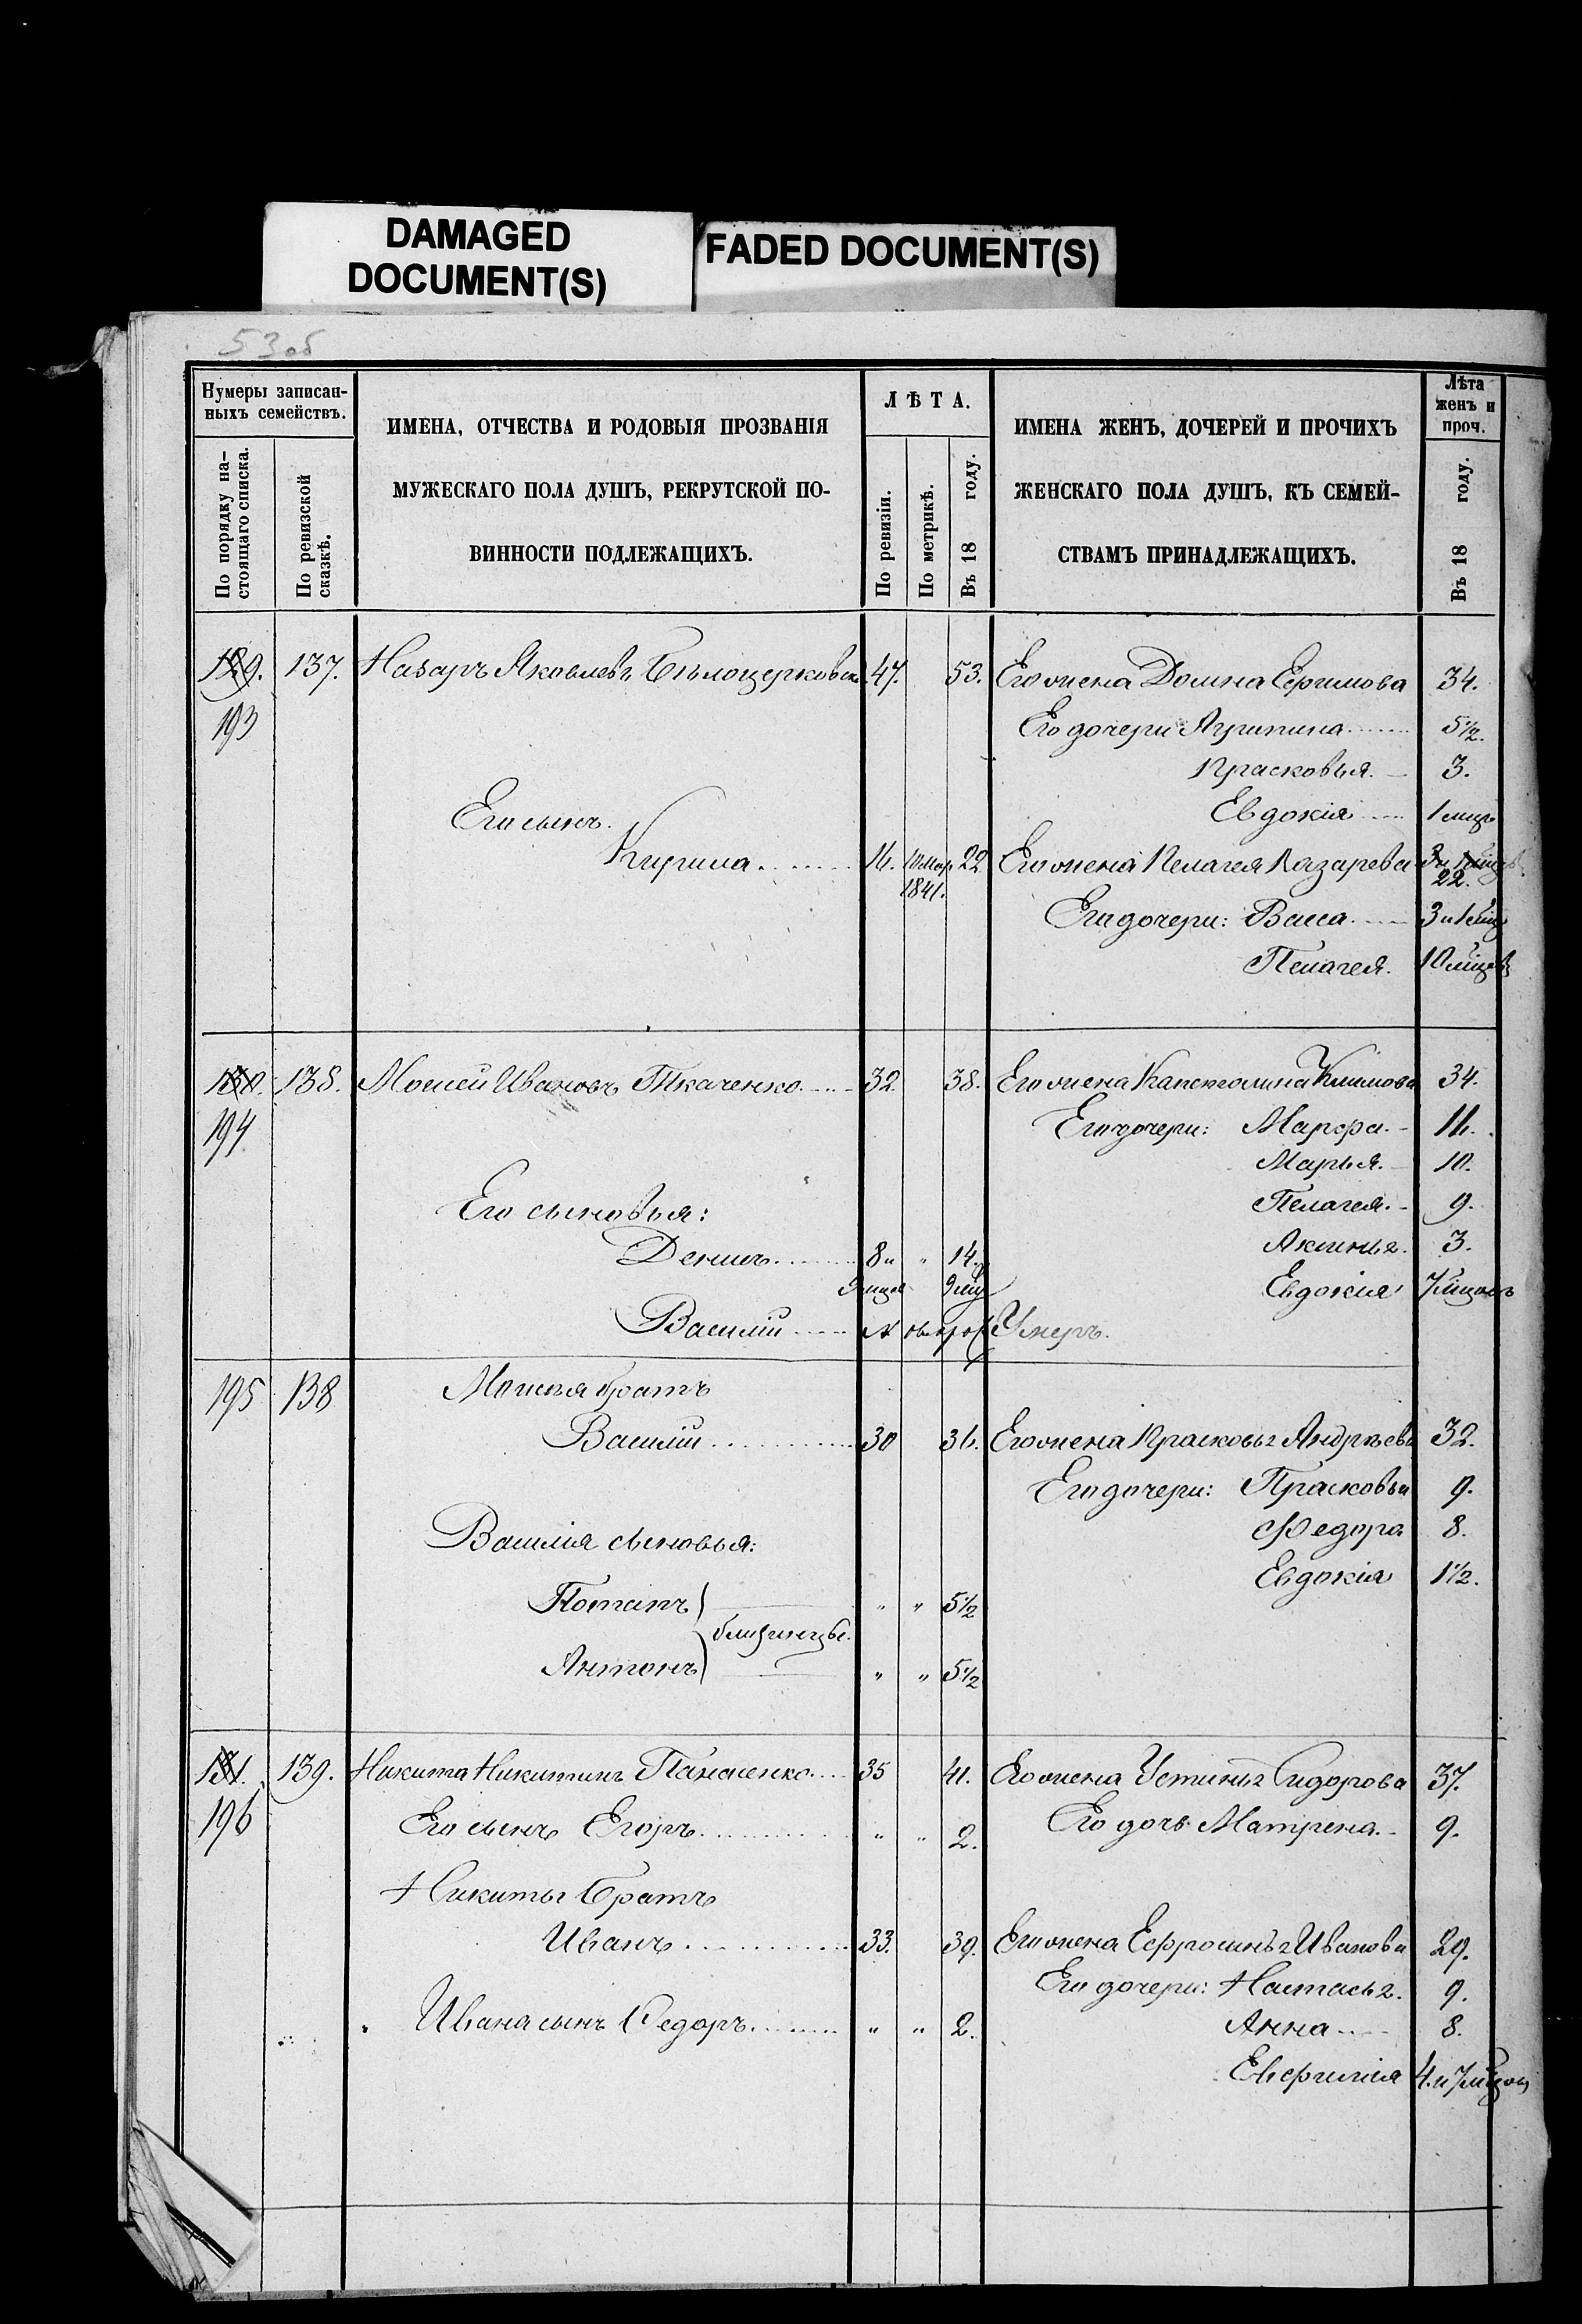 DAMAGED
DOCUMENT(S)
FADED DOCUMENT(S)
53 об
Нумеры записан-
ныхъ семействъ.
По порядку на-
стоящаго списка.
По ревизской
сказкѣ.
ИМЕНА, ОТЧЕСТВА И РОДОВЫЯ ПРОЗВАНІЯ
МУЖЕСКАГО ПОЛА ДУШЪ, РЕКРУТСКОЙ ПО-
ВИННОСТИ ПОДЛЕЖАЩИХЪ.
ЛѢТА.
По ревизіи.
По метрикѣ.
Въ 18 году.
ИМЕНА ЖЕНЪ, ДОЧЕРЕЙ И ПРОЧИХЪ
ЖЕНСКАГО ПОЛА ДУШЪ, КЪ СЕМЕЙ-
СТВАМЪ ПРИНАДЛЕЖАЩИХЪ.
Лѣта
женъ и
проч.
Въ 18 году.
129. 137. Назаръ Яковлевъ Бѣлоцерковск 47. 53. Его жена Домна Ефимова 34.
193 Его дочери Агрипина 5½.
Прасковья. 3.
Евдокія 1 мцъ
Его сынъ.
Кирила 16. 10 мар 22 Его жена Пелагея Лазарева
1841. 22.
Его дочери: Васса 3 и 1 мц
Пелагея. 10 мцевъ
130. 138. Моисей Ивановъ Ткаченко 32 38. Его жена Капетолина Климова 34.
194 Его дочери: Марфа. 16.
Марья. 10.
Пелагея. 9.
Его сыновья:
Денисъ 8 и " 14. Аксинья. 3.
9 мцев 9 мц Евдокія 7 мцовъ
Василій Умеръ.
195 138 Моисея братъ
Василій 30 36. Его жена Прасковья Андрѣева 32.
Его дочери: Прасковья 9.
Василія сыновья: Федора 8.
Евдокія 1½.
Потапъ " " 5½
близнецы.
Антонъ " " 5½
131. 139. Никита Никитинъ Панасенко 35 41. Его жена Устинья Сидорова 37.
196 Его сынъ Егоръ " " 2. Его дочь Матрена. 9.
Никиты братъ
Иванъ 33. 39. Его жена Ефросинья Иванова 29.
Его дочери: Настасья. 9.
Ивана сынъ Федоръ " " 2. Анна 8.
Евфимія 4. и 7 мцов